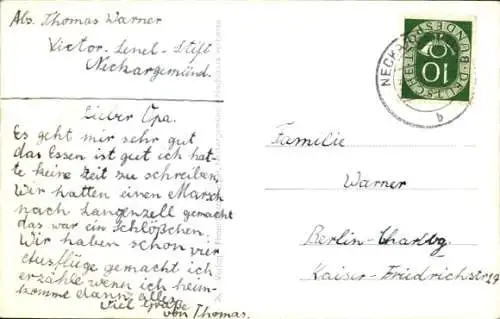 Abs. Thomas Warner
Victor-Lenel-Stift
Neckargemünd.
Lieber Opa.
Es geht mir sehr gut
das Essen ist gut ich hat-
te keine Zeit zu schreiben,
Wir hatten einen Marsch
nach Langenzell gemacht
das war ein Schlößchen.
Wir haben schon vier
Ausflüge gemacht ich
erzähle wenn ich heim-
komme dann alles
viel Grüße
von Thomas.
DEUTSCHE BUNDESPOST
10
NECKAR
b
Familie
Warner
Berlin-Charlbg
Kaiser-Friedrichstr 19